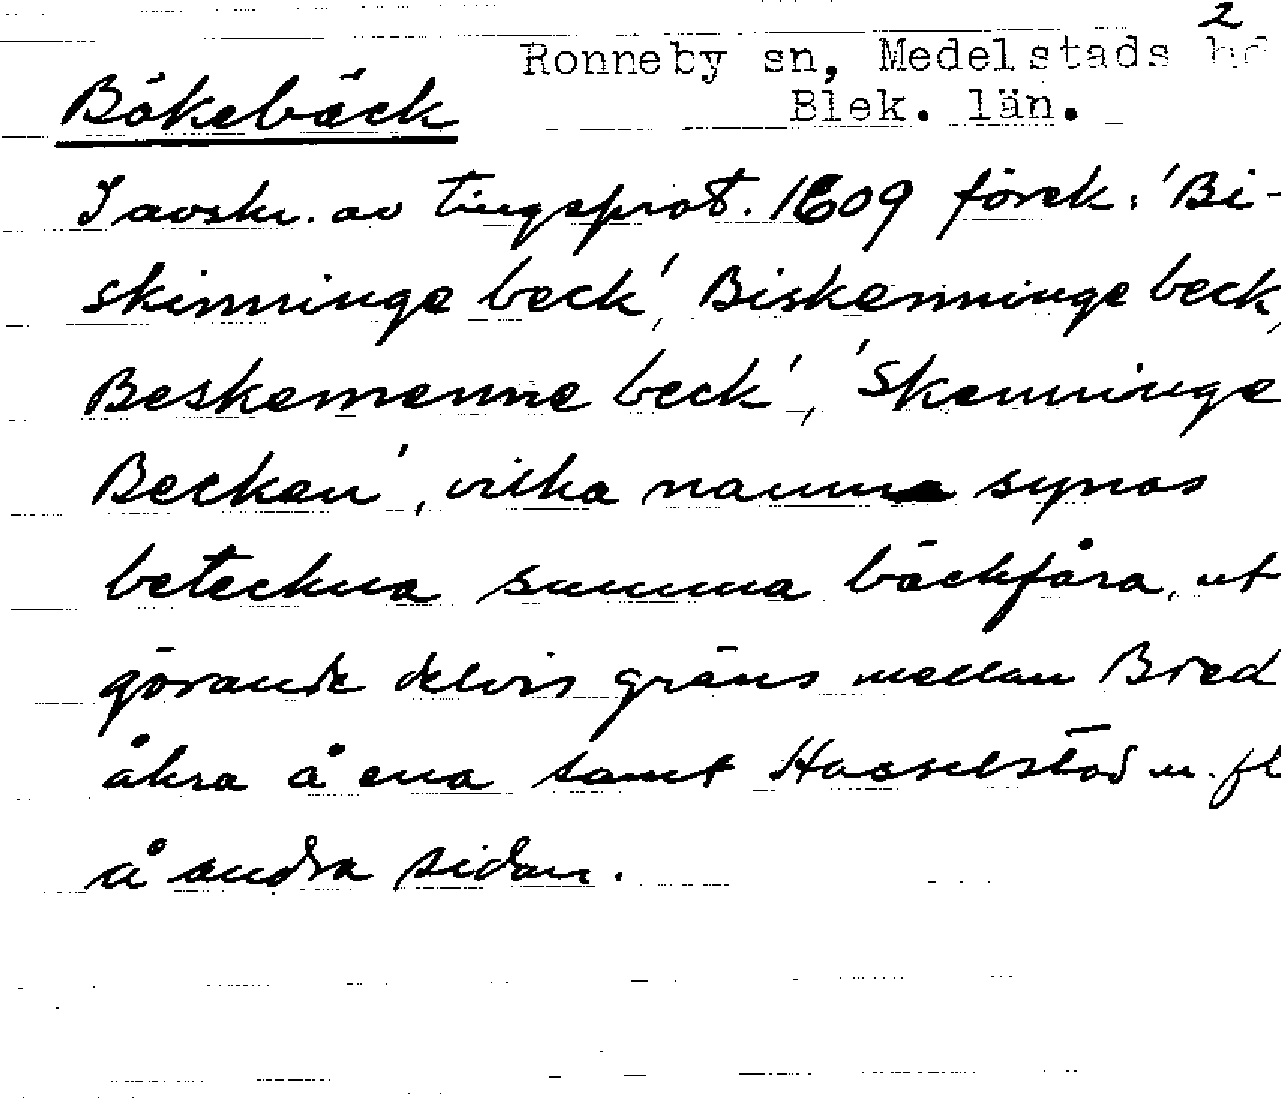 2
Ronneby sn, Medelstads hd
Blek. län.
Bökebäck
I avskr. av tingsprot. 1609 förek: 'Bi-
skinninge beck', Biskenninge beck,
Beskemenne beck', 'Skenninge
Becken', vilka namn synas
beteckna summa bäckfåra, ut
görande delvis gräns mellan Bred
åkra å ena samt Hasselstad m. fl
å andra sidan.